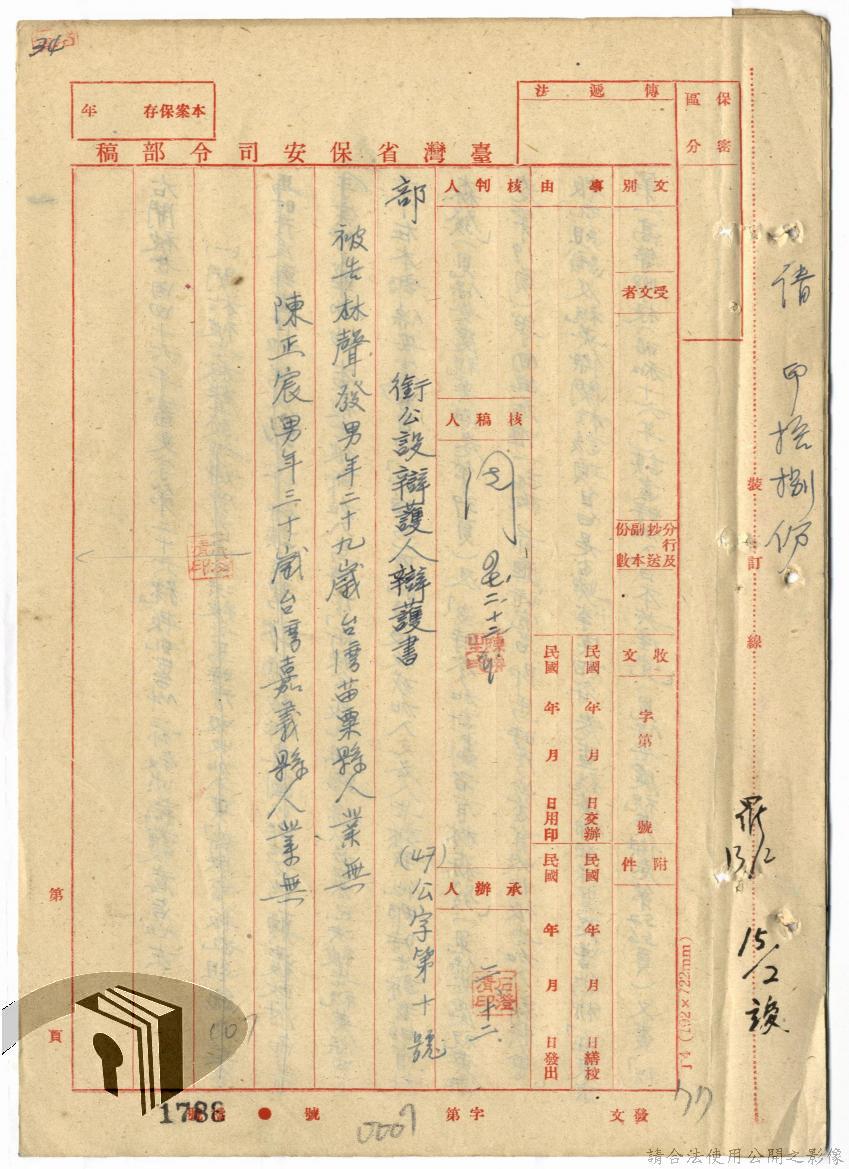 34
本案保存 年
傳遞法
保密區分
臺灣省保安司令部稿
文別
受文者
分行及抄送副本份數
收文
字第 號
附件
事由
民國 年 月 日交辦
民國 年 月 日用印
民國 年 月 日繕校
民國 年 月 日發出
核判人
核稿人
二、十二
承辦人
二、十二
部 銜公設辯護人辯護書 (47)公字第十號
被告林聲發男年二十九歲台灣苗栗縣人業無
陳正宸男年三十歲台灣嘉義縣人業無
請印拾捌份
裝訂線
15/2
J4(192×722mm)
第 頁
發文 字第 號
0007
1788
77
請合法使用公開之影像